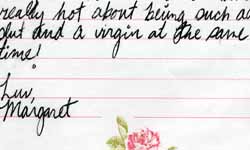 really hot about being such a
slut and a virgin at the same
time!
Luv,
Margaret